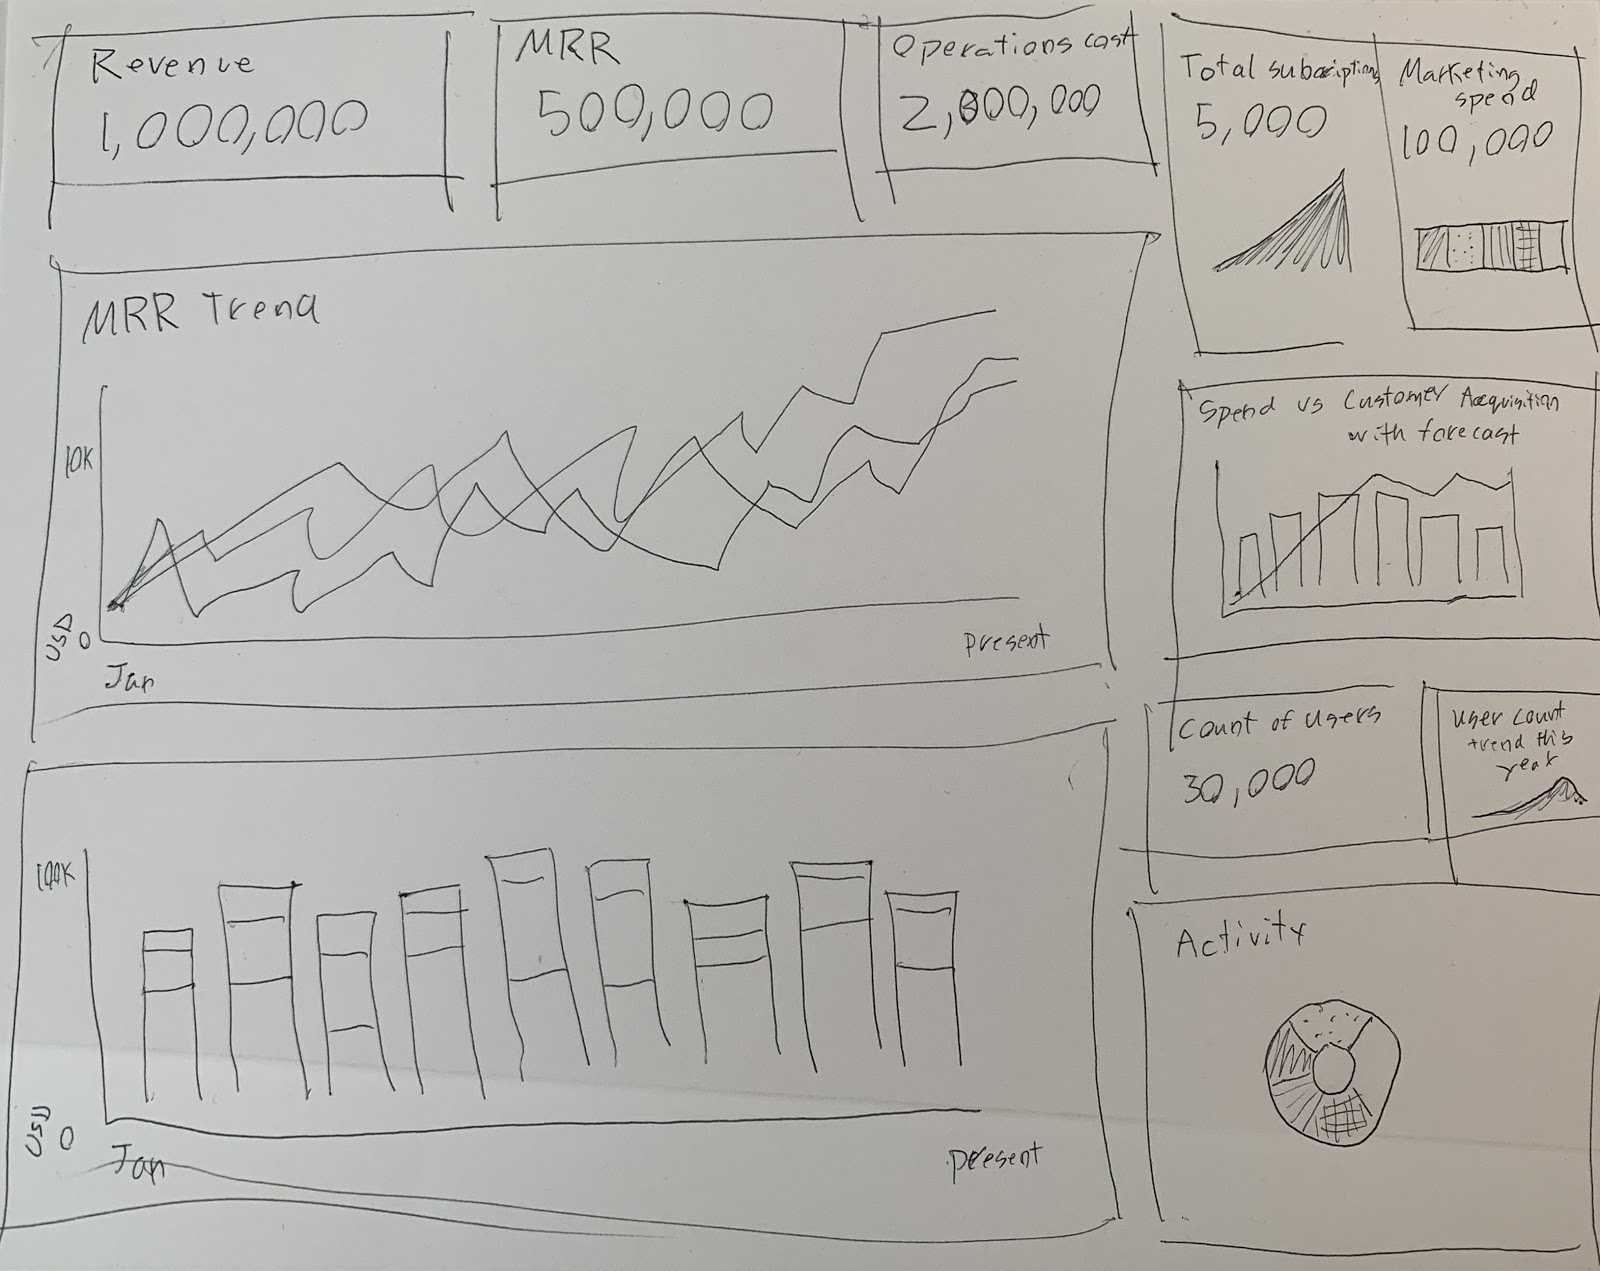 Revenue
1,000,000
MRR
500,000
Operations cost
2,000,000
Total subscriptions
5,000
Marketing
spend
100,000
MRR Trend
10K
USD 0
Jan
present
Spend vs Customer Acquisition
with forecast
Count of users
30,000
User count
trend this
year
100K
USD 0
Jan
present
Activity